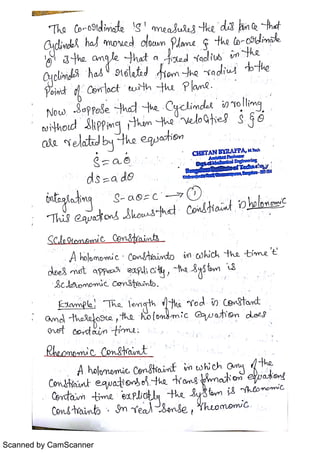 The Co-ordinate 'S' measures the distance that
Cylinder has moved down Plane & the Co-ordinate
'θ' is the angle that a fixed radius in the
Cylinder has rotated from the radius to the
Point of Contact with the Plane.
Now Suppose that the Cyclinder is rolling
without Slipping, then the velocities ṡ & θ̇
are related by the equation
CHETAN BYRAPPA, M.Tech
Assistant Professor
Dept. of Mechanical Engineering
Bangalore Institute of Technology
ṡ = a θ̇
ds = a dθ
integrating S - aθ = c → ①
This equations Shows that Constraint is holonomic
Scleronomic Constraints
A holonomic Constraints in which the time 't'
does not appear explicitly, the System is
Scleronomic constraints.
Example: The length of the rod is Constant
and therefore, the holonomic equation does
not Contain time.
Rheonomic Constraint
A holonomic Constraint in which any of the
Constraint equations of the transformation equations
Contain time explicitly the System is rheonomic
Constraints. In real Sense, rheonomic
Scanned by CamScanner